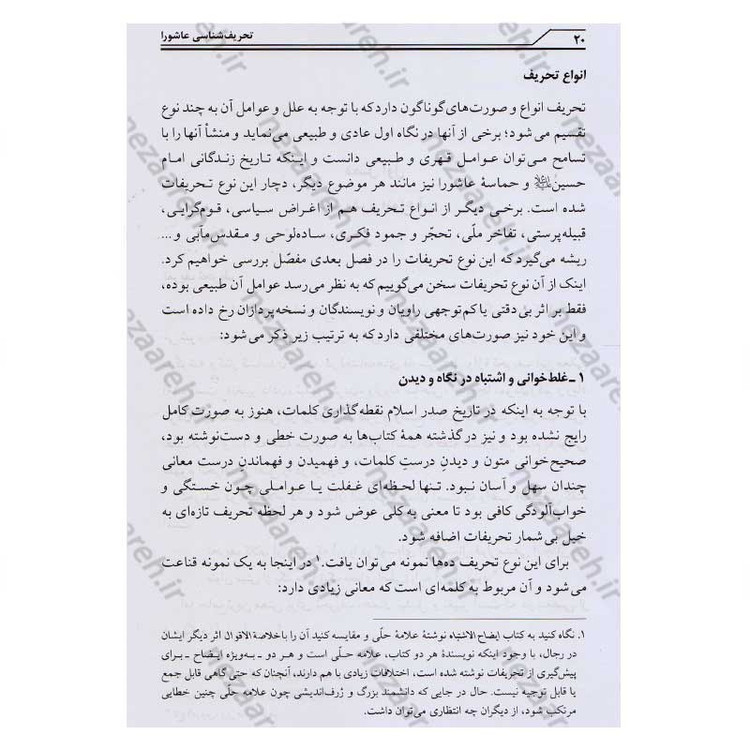 ۲۰
تحریف‌شناسی عاشورا
انواع تحریف
تحریف انواع و صورت‌های گوناگون دارد که با توجه به علل و عوامل آن به چند نوع
تقسیم می‌شود؛ برخی از آنها در نگاه اول عادی و طبیعی می‌نماید و منشأ آنها را با
تسامح می‌توان عوامل قهری و طبیعی دانست و اینکه تاریخ زندگانی امام
حسین و حماسهٔ عاشورا نیز مانند هر موضوع دیگر، دچار این نوع تحریفات
شده است. برخی دیگر از انواع تحریف هم از اغراض سیاسی، قوم‌گرایی،
قبیله‌پرستی، تفاخر ملّی، تحجّر و جمود فکری، ساده‌لوحی و مقدس‌مآبی و...
ریشه می‌گیرد که این نوع تحریفات را در فصل بعدی مفصّل بررسی خواهیم کرد.
اینک از آن نوع تحریفات سخن می‌گوییم که به نظر می‌رسد عوامل آن طبیعی بوده،
فقط بر اثر بی‌دقتی یا کم‌توجهی راویان و نویسندگان و نسخه‌پردازان رخ داده است
و این خود نیز صورت‌های مختلفی دارد که به ترتیب زیر ذکر می‌شود:
۱ ـ غلط‌خوانی و اشتباه در نگاه و دیدن
با توجه به اینکه در تاریخ صدر اسلام نقطه‌گذاری کلمات، هنوز به صورت کامل
رایج نشده بود و نیز در گذشته همهٔ کتاب‌ها به صورت خطی و دست‌نوشته بود،
صحیح‌خوانی متون و دیدن درستِ کلمات، و فهمیدن و فهماندنِ درست معانی
چندان سهل و آسان نبود. تنها لحظه‌ای غفلت یا عواملی چون خستگی و
خواب‌آلودگی کافی بود تا معنی به کلی عوض شود و هر لحظه تحریف تازه‌ای به
خیل بی‌شمار تحریفات اضافه شود.
برای این نوع تحریف ده‌ها نمونه می‌توان یافت.۱ در اینجا به یک نمونه قناعت
می‌شود و آن مربوط به کلمه‌ای است که معانی زیادی دارد:
۱. نگاه کنید به کتاب ایضاح الاشتباه نوشتهٔ علامهٔ حلّی و مقایسه کنید آن را با خلاصة الاقوال اثر دیگر ایشان
در رجال، با وجود اینکه نویسندهٔ هر دو کتاب، علامه حلّی است و هر دو ـ به‌ویژه ایضاح ـ برای
پیش‌گیری از تحریفات نوشته شده است، اختلافات زیادی با هم دارند، آنچنان که حتی گاهی قابل جمع
یا قابل توجیه نیست. حال در جایی که دانشمند بزرگ و ژرف‌اندیشی چون علامه حلّی چنین خطایی
مرتکب شود، از دیگران چه انتظاری می‌توان داشت.
nezaareh.ir